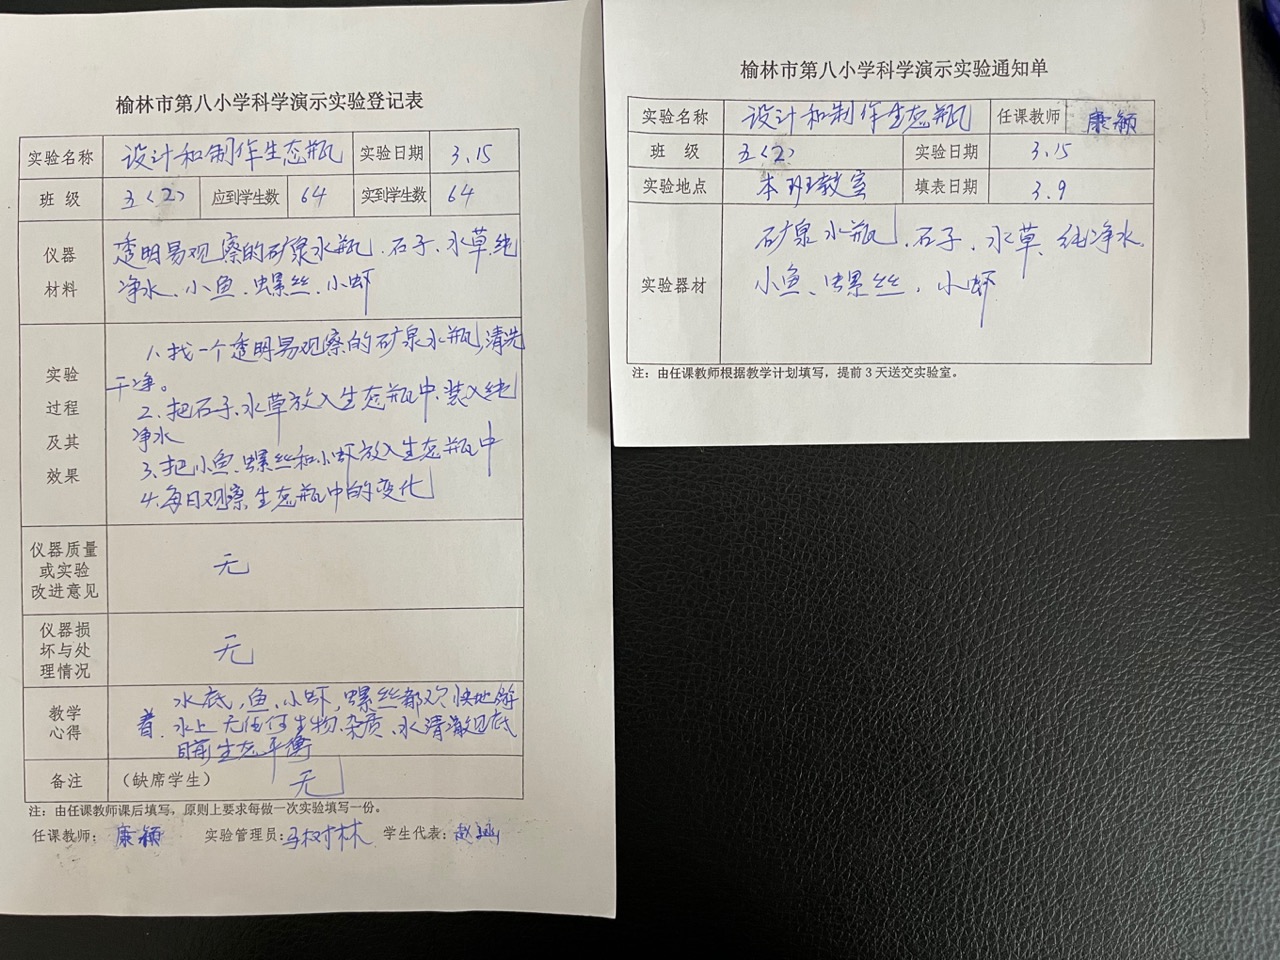 榆林市第八小学科学演示实验登记表
实验名称 设计和制作生态瓶 实验日期 3.15
班 级 五(2) 应到学生数 64 实到学生数 64
仪器
材料
透明易观察的矿泉水瓶、石子、水草、纯
净水、小鱼、螺丝、小虾
实验
过程
及其
效果
1.找一个透明易观察的矿泉水瓶,清洗
干净。
2.把石子、水草放入生态瓶中,装入纯
净水
3.把小鱼、螺丝和小虾放入生态瓶中
4.每日观察生态瓶中的变化
仪器质量
或实验
改进意见
无
仪器损
坏与处
理情况
无
教学
心得
水底,鱼、小虾,螺丝都欢快地游
着.水上无任何生物、杂质、水清澈见底
目前生态平衡
备注 (缺席学生) 无
注:由任课教师课后填写,原则上要求每做一次实验填写一份。
任课教师: 康颖 实验管理员:马树林 学生代表:赵
榆林市第八小学科学演示实验通知单
实验名称 设计和制作生态瓶 任课教师 康颖
班 级 五(2) 实验日期 3.15
实验地点 本班教室 填表日期 3.9
实验器材
矿泉水瓶、石子、水草、纯净水、
小鱼、螺丝、小虾
注:由任课教师根据教学计划填写,提前 3 天送交实验室。